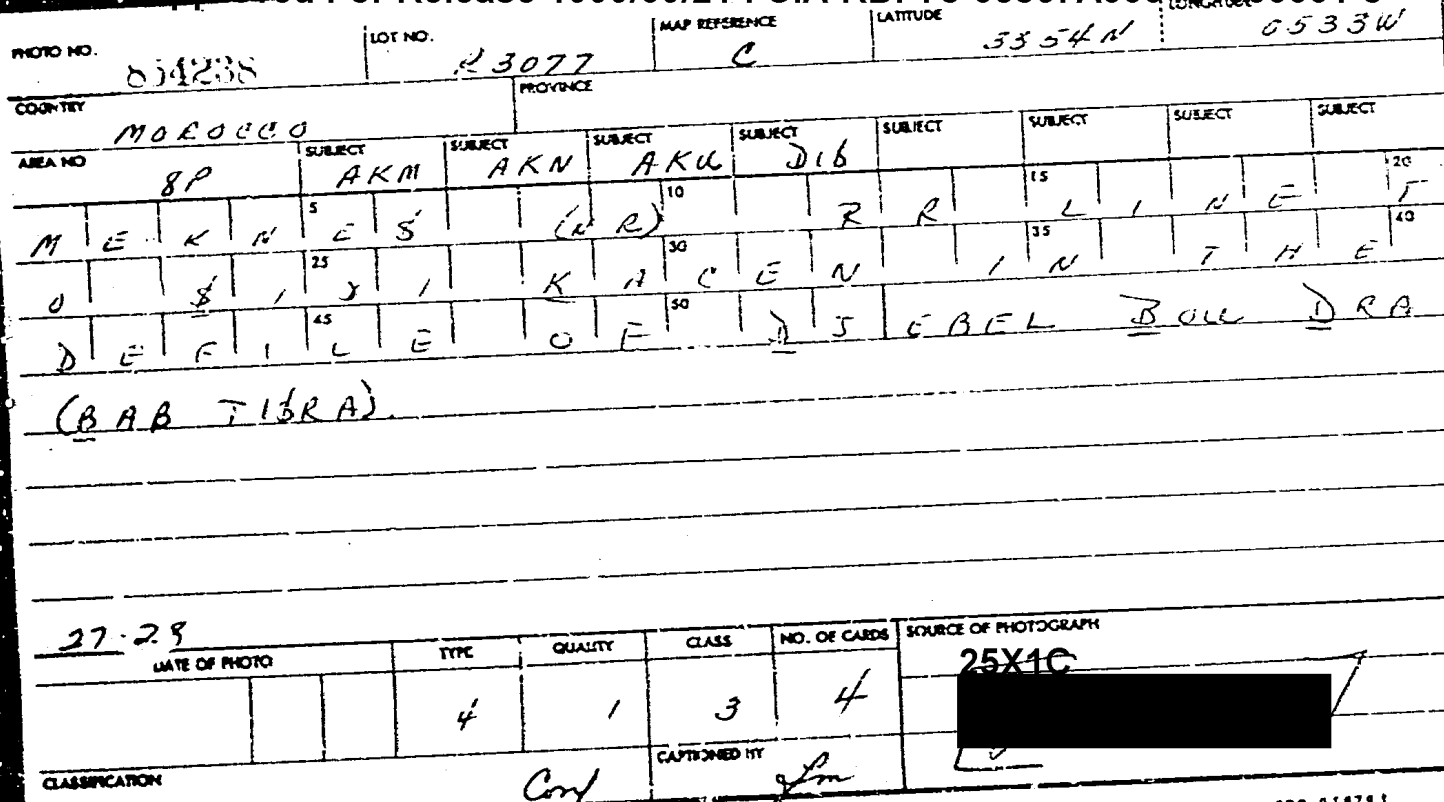 PHOTO NO. LOT NO. R3077 MAP REFERENCE C LATITUDE 3354N 0533W
COUNTRY MOROCCO PROVINCE
AREA NO 8P SUBJECT AKM SUBJECT AKN SUBJECT AKU SUBJECT D16 SUBJECT SUBJECT SUBJECT SUBJECT
MEKNES (NR) RR LINE T
O SIDI KACEN IN THE
DEFILE OF DJEBEL BOU DRA
(BAB TISRA).
27-29
DATE OF PHOTO TYPE QUALITY CLASS NO. OF CARDS SOURCE OF PHOTOGRAPH
25X1C
4 1 3 4
CLASSIFICATION Conf CAPTIONED BY